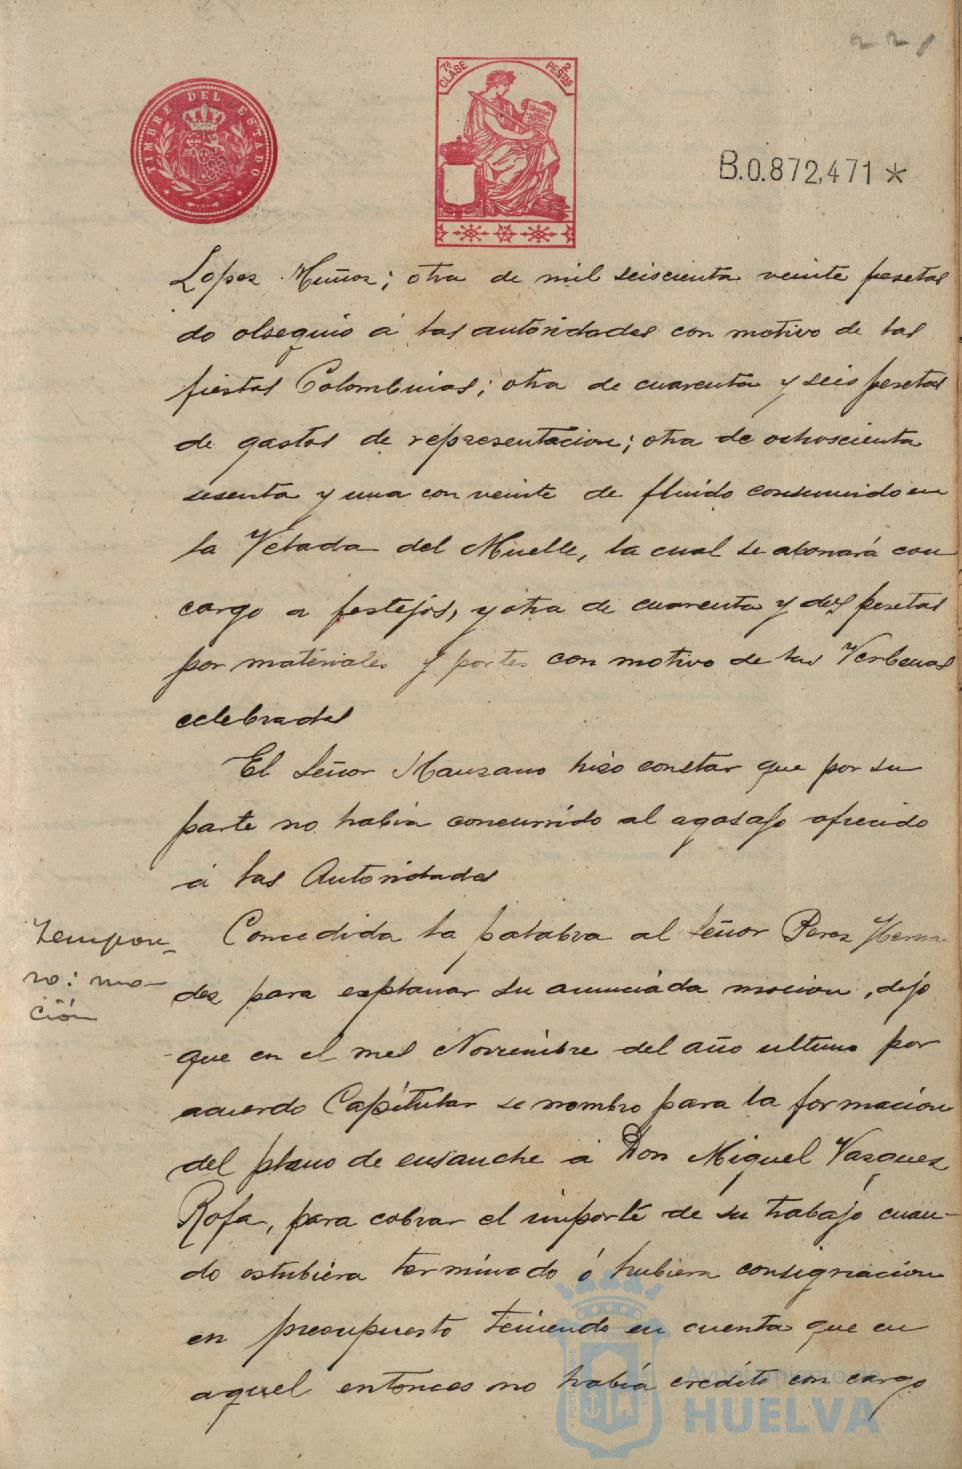 221
TIMBRE DEL ESTADO
7ª CLASE
2 PESETAS
B.0.872,471 *
Lopez Muñoz; otra de mil seiscienta veinte pesetas
do obsequio á las autoridades con motivo de las
fiestas Colombinas; otra de cuarenta y seis pesetas
de gastos de representacion; otra de ochoscienta
sesenta y una con veinte de fluido consumido en
la Velada del Muelle, la cual se abonará con
cargo a festejos, y otra de cuarenta y dos pesetas
por materiales y portes con motivo de las Verbenas
celebradas
El Señor Manzano hizo constar que por su
parte no habia concurrido al agasajo ofrecido
á las Autoridades
Concedida la palabra al Señor Perez Hernan
dez para explanar su anunciada mocion, dijo
ro: mo-
ción
que en el mes Noviembre del año ultimo por
acuerdo Capitular se nombro para la formacion
del plano de ensanche a Don Miguel Vazquez
Rofa, para cobrar el importe de su trabajo cuan-
do estubiera terminado ó hubiera consignacion
en presupuesto teniendo en cuenta que en
aquel entonces no había credito con cargo
Ayuntamiento de
HUELVA